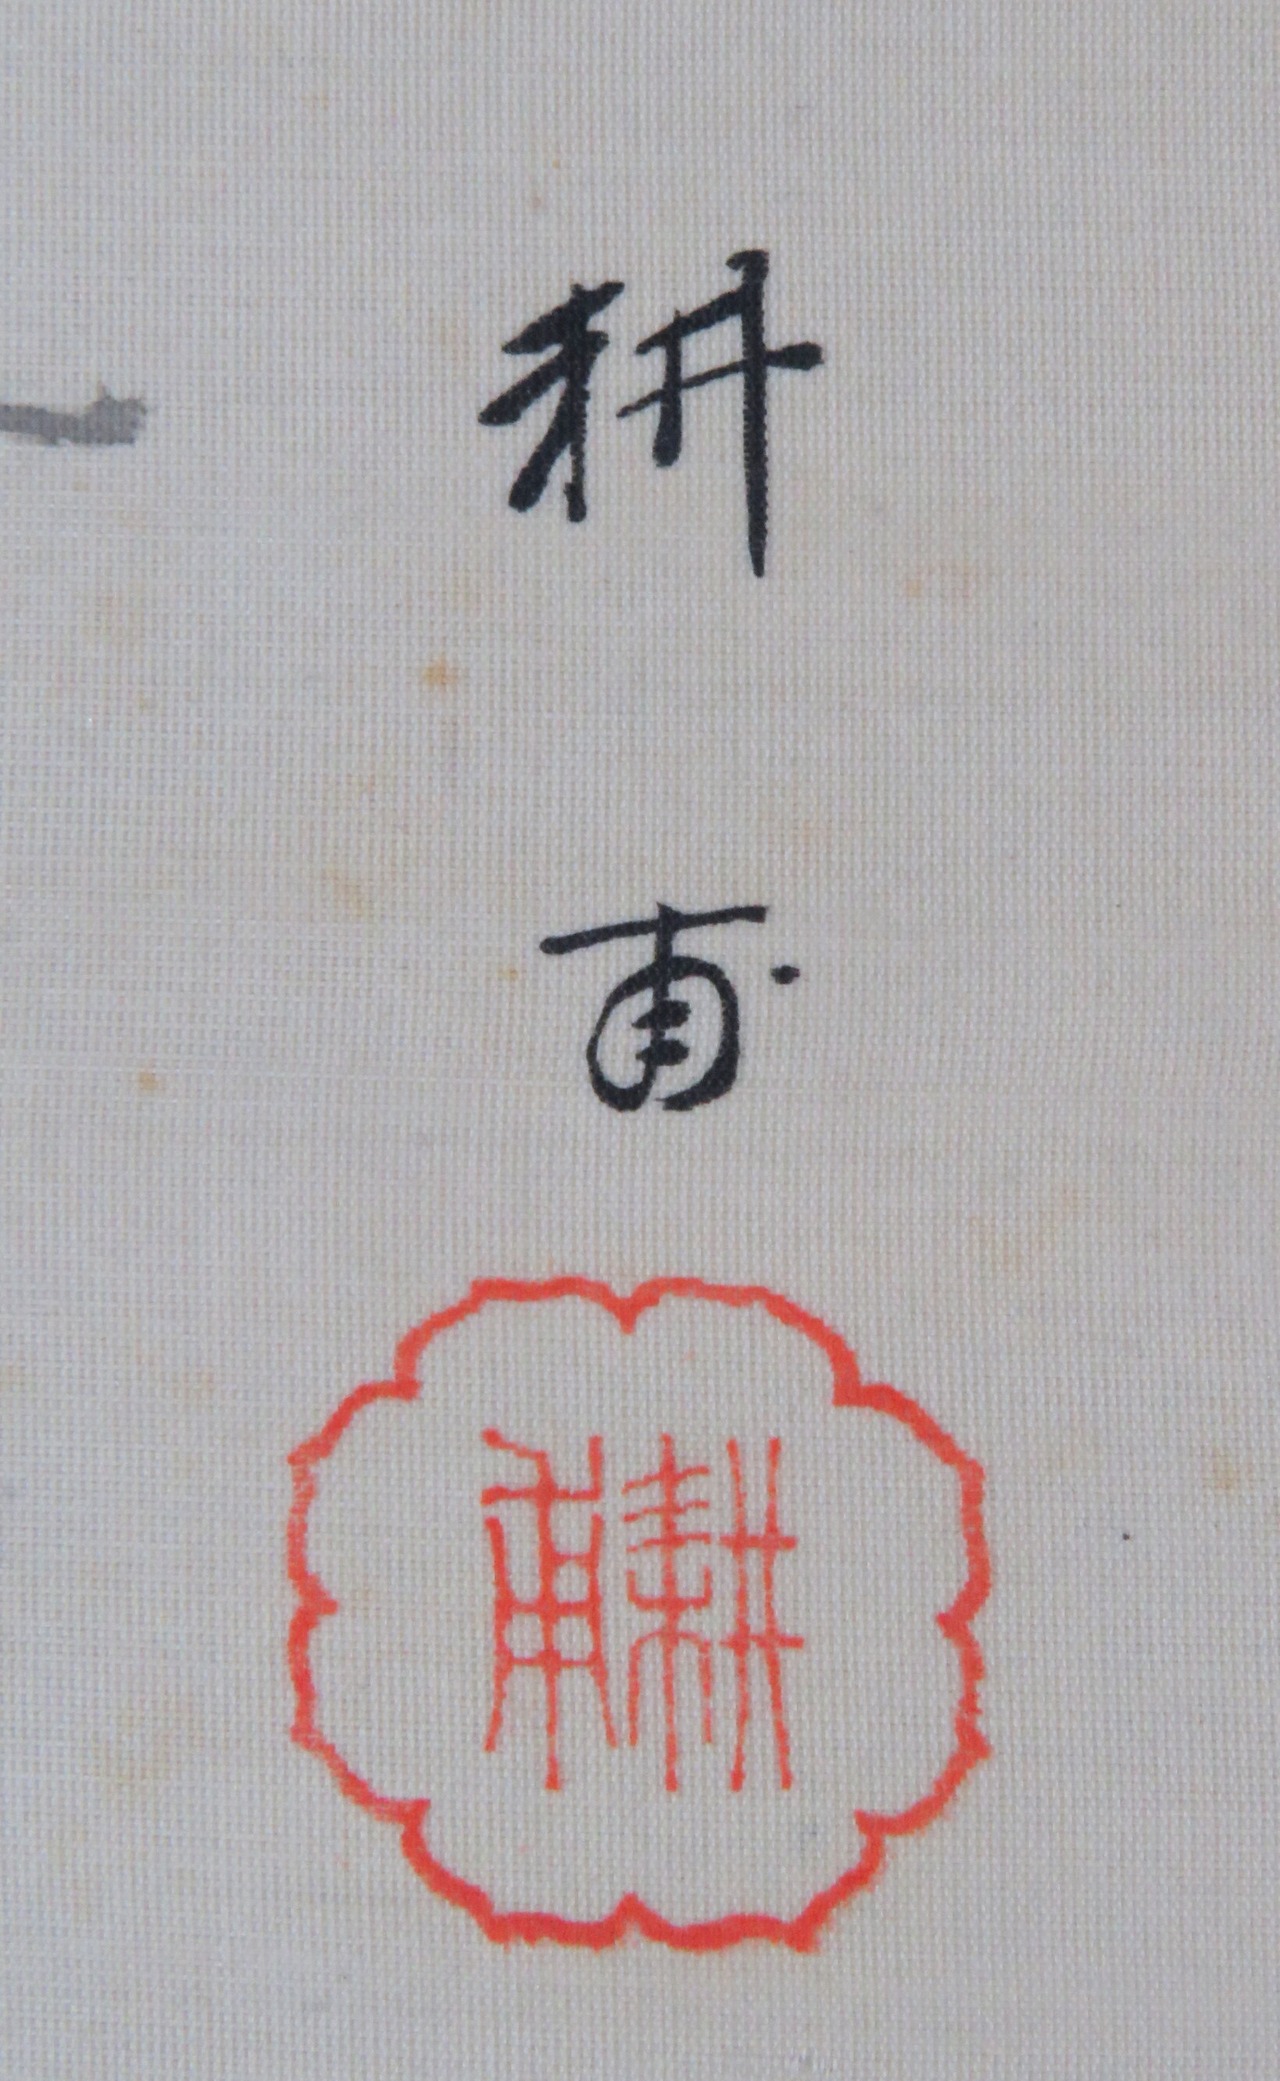 耕
甫
耕甫